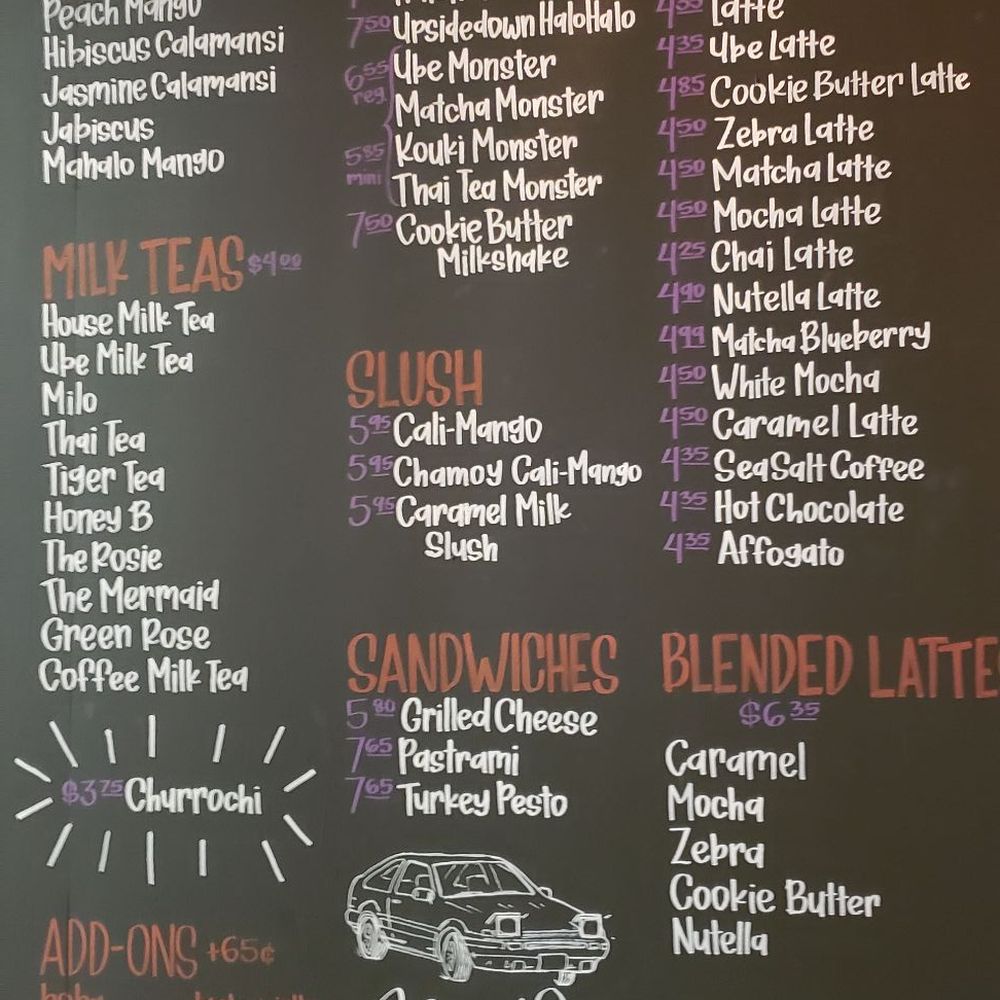 Peach Mango
Hibiscus Calamansi
Jasmine Calamansi
Jabiscus
Mahalo Mango
MILK TEAS $4.00
House Milk Tea
Ube Milk Tea
Milo
Thai Tea
Tiger Tea
Honey B
The Rosie
The Mermaid
Green Rose
Coffee Milk Tea
$3.75 Churrochi
ADD-ONS +65¢
7.50 Upsidedown HaloHalo
6.55 reg
5.85 mini
Ube Monster
Matcha Monster
Kouki Monster
Thai Tea Monster
7.50 Cookie Butter
Milkshake
SLUSH
5.95 Cali-Mango
5.95 Chamoy Cali-Mango
5.95 Caramel Milk
Slush
SANDWICHES
5.80 Grilled Cheese
7.65 Pastrami
7.65 Turkey Pesto
Latte
4.35 Ube Latte
4.85 Cookie Butter Latte
4.50 Zebra Latte
4.50 Matcha Latte
4.50 Mocha Latte
4.25 Chai Latte
4.90 Nutella Latte
4.99 Matcha Blueberry
4.50 White Mocha
4.50 Caramel Latte
4.35 SeaSalt Coffee
4.35 Hot Chocolate
4.35 Affogato
BLENDED LATTE
$6.35
Caramel
Mocha
Zebra
Cookie Butter
Nutella